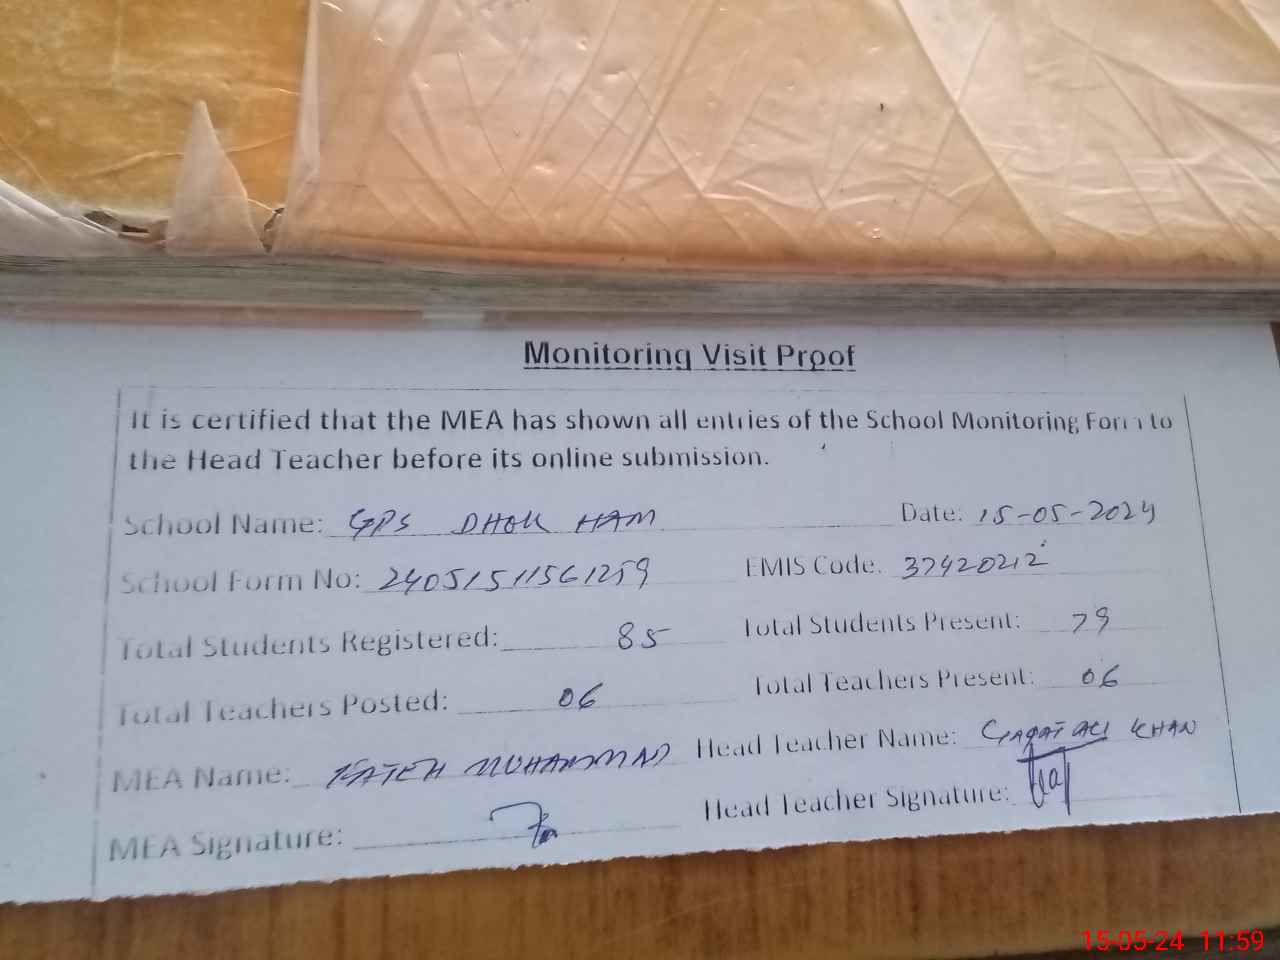 Monitoring Visit Proof
It is certified that the MEA has shown all entries of the School Monitoring Form to
the Head Teacher before its online submission.
School Name: GPS DHOK HAM Date: 15-05-2024
School Form No: 24051511561259 EMIS Code: 37420212
Total Students Registered: 85 Total Students Present: 79
Total Teachers Posted: 06 Total Teachers Present: 06
MEA Name: FATEH MUHAMMAD Head Teacher Name: ALI KHAN
MEA Signature: Head Teacher Signature:
15-05-24 11:59